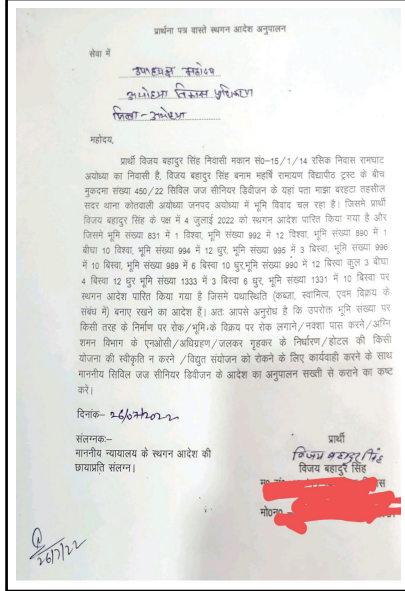 प्रार्थना पत्र वास्ते स्थगन आदेश अनुपालन
सेवा में
उपाध्यक्ष महोदय
अयोध्या विकास प्राधिकरण
जिला - अयोध्या
महोदय,
प्रार्थी विजय बहादुर सिंह निवासी मकान सं0-15/1/14 रसिक निवास रामघाट
अयोध्या का निवासी है, विजय बहादुर सिंह बनाम महर्षि रामायण विद्यापीठ ट्रस्ट के बीच
मुकदमा संख्या 450/22 सिविल जज सीनियर डिवीजन के यहां पता माझा बरहटा तहसील
सदर थाना कोतवाली अयोध्या जनपद अयोध्या में भूमि विवाद चल रहा है। जिसमे प्रार्थी
विजय बहादुर सिंह के पक्ष में 4 जुलाई 2022 को स्थगन आदेश पारित किया गया है और
जिसमे भूमि संख्या 831 में 1 विश्वा, भूमि संख्या 992 में 12 विश्वा, भूमि संख्या 890 में 1
बीघा 10 विश्वा, भूमि संख्या 994 में 12 धुर, भूमि संख्या 995 में 3 बिस्वा, भूमि संख्या 996
में 10 बिस्वा, भूमि संख्या 989 में 6 बिस्वा 10 धुर,भूमि संख्या 990 में 12 बिस्वा कुल 3 बीघा
4 बिस्वा 12 धुर भूमि संख्या 1333 में 3 बिस्वा 6 धुर, भूमि संख्या 1331 में 10 बिस्वा पर
स्थगन आदेश पारित किया गया है जिसमें यथास्थिति (कब्जा, स्वामित्व, एवम विक्रय के
संबंध में) बनाए रखने का आदेश हैं। अतः आपसे अनुरोध है कि उपरोक्त भूमि संख्या पर
किसी तरह के निर्माण पर रोक/भूमि के विक्रय पर रोक लगाने/नक्शा पास करने/अग्नि
शमन विभाग के एनओसी/अधिग्रहण/जलकर गृहकर के निर्धारण/होटल की किसी
योजना की स्वीकृति न करने /विद्युत संयोजन को रोकने के लिए कार्यवाही करने के साथ
माननीय सिविल जज सीनियर डिवीजन के आदेश का अनुपालन सख्ती से कराने का कष्ट
करें।
दिनांक– 26/07/2022
संलग्नकः–
माननीय न्यायालय के स्थगन आदेश की
छायाप्रति संलग्न।
प्रार्थी
विजय बहादुर सिंह
विजय बहादुर सिंह
मो0न0
26/7/22